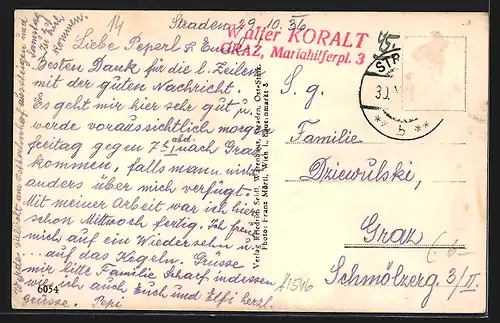 14
Straden 29.10.36
Walter KORALT
GRAZ, Mariahilferpl. 3
45.
Liebe Peperl & Euch!
Besten Dank für die l. Zeilen
mit der guten Nachricht.
Es geht mir hier sehr gut u.
werde voraussichtlich morgen
freitag gegen 7h abd. nach Graz
kommen, falls man nicht
anders über mich verfügt.
Mit meiner Arbeit war ich hier
schon Mittwoch fertig. Ich freue
mich auf ein Wiedersehen u.
... auf das Kegeln. Grüsse
mir bitte Familie Scharf indessen
wie ich auch Euch und Elfi herzl.
grüsse. Pepi
6054
Werde vielleicht am Ostbahnhof aussteigen und
Samstag
zu Euch
kommen.
Verlag Friedrich Seidl, Warenhaus, Straden, Ost-Stmk.
Photo: Franz Mörtl, Wien I., Bauernmarkt
STR
30.
** b **
S. g.
Familie
Dziewulski,
Graz
Schmölzerg. 3/II.
#1546
6-